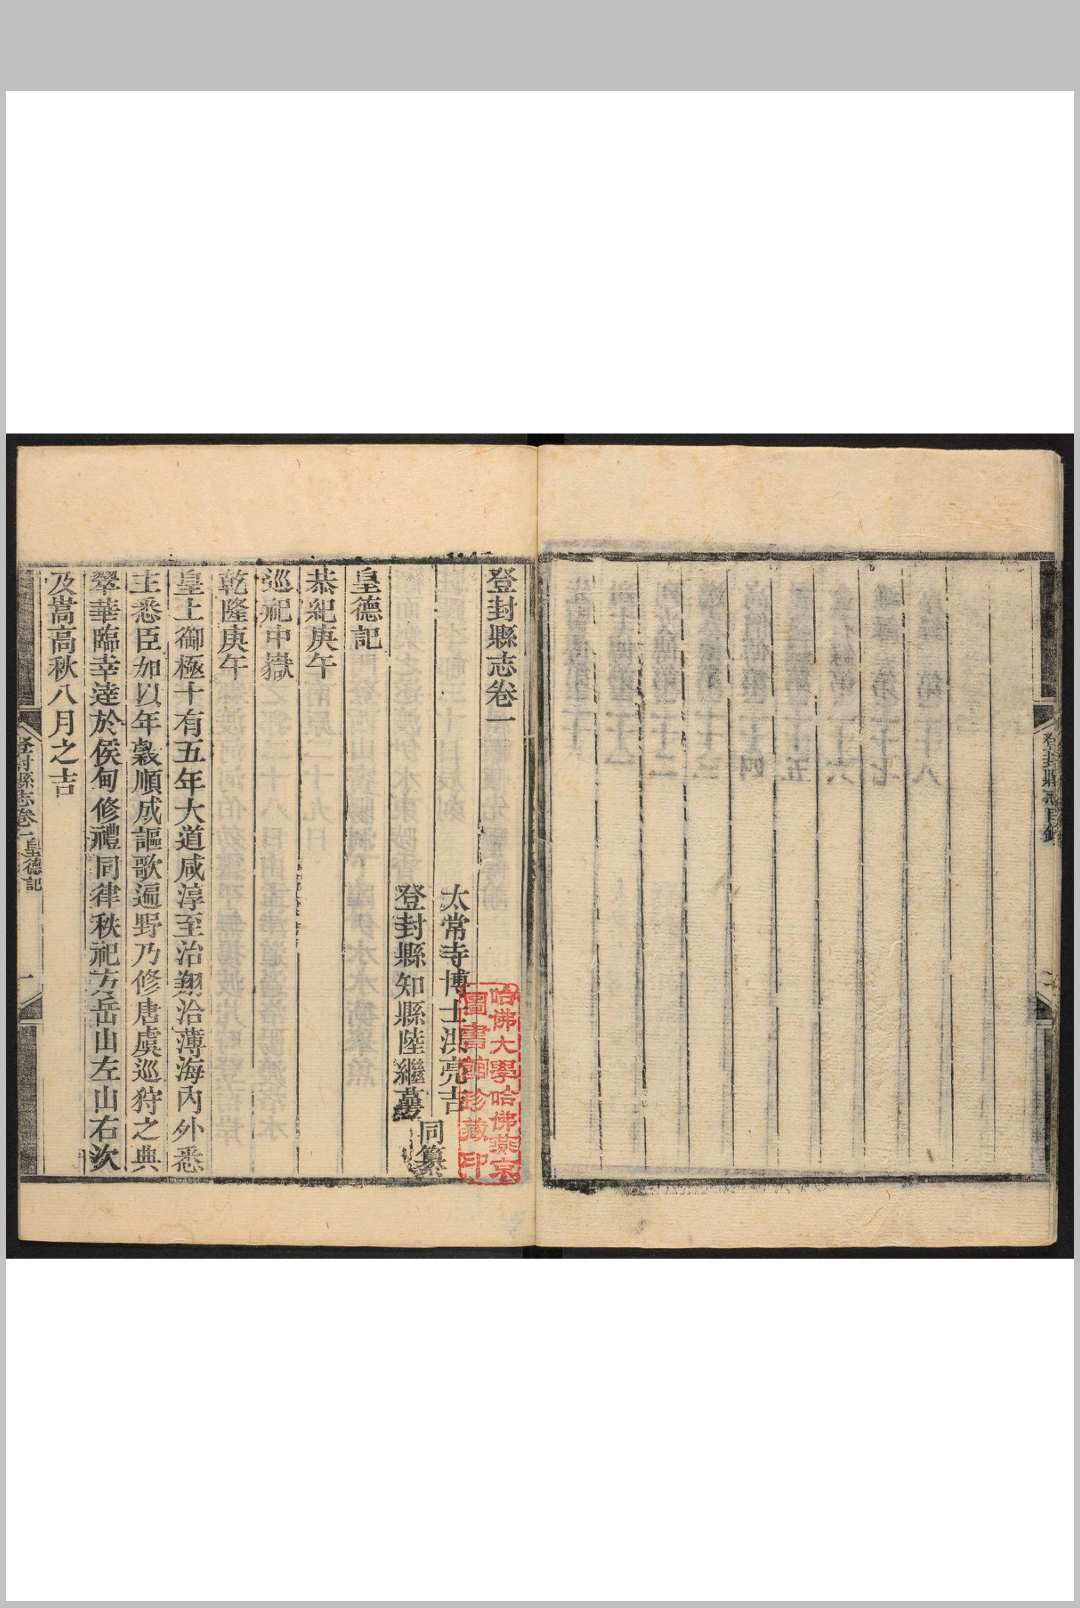 登封縣志目錄
登封縣志卷一
太常寺博士洪亮吉
登封縣知縣陸繼萼
同纂
皇德記
恭紀庚午
巡祀中嶽
乾隆庚午
皇上御極十有五年大道咸淳至治翔洽薄海內外悉
主悉臣加以年穀順成謳歌遍野乃修唐虞巡狩之典
翠華臨幸達於侯甸修禮同律秩祀方岳山左山右次
及嵩高秋八月之吉
登封縣志卷一
皇德記
一
哈佛大學哈佛燕京
圖書館珍藏印